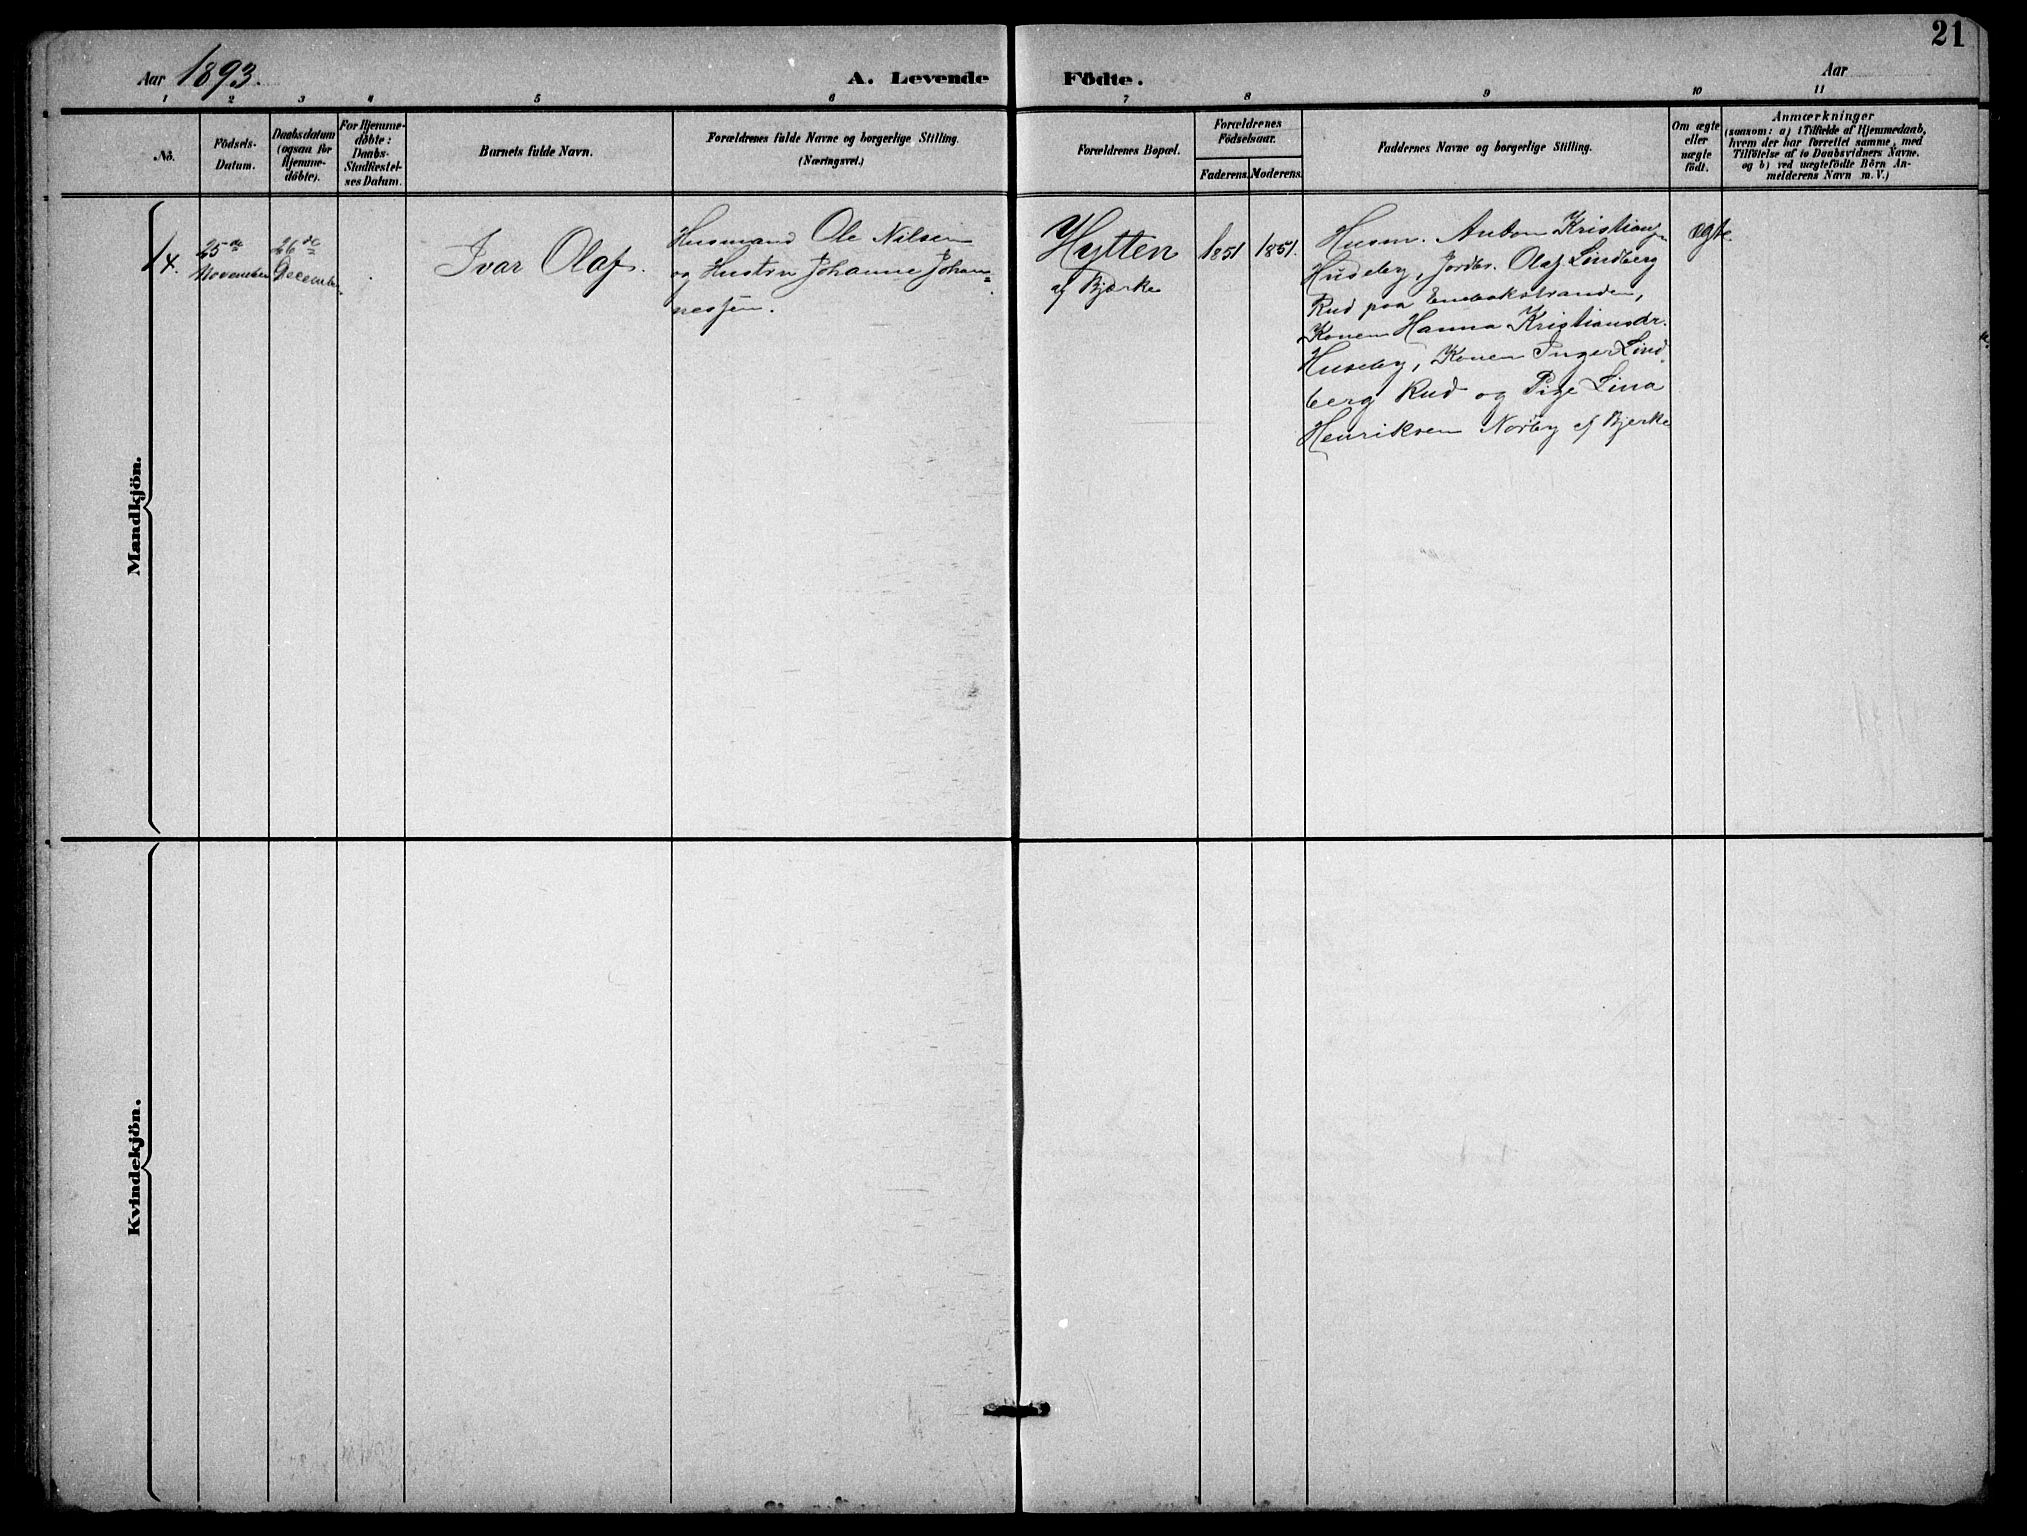 21
Aar 1893.
A. Levende Födte.
Aar
1 2 3 4 5 6 7 8 9 10 11
No.
Födsels-
Datum.
Daabsdatum
(ogsaa for
Hjemme-
döbte).
For Hjemme-
döbte:
Daabs-
Stadfæstel-
ses Datum.
Barnets fulde Navn.
Forældrenes fulde Navne og borgerlige Stilling.
(Næringsvei.)
Forældrenes Bopæl.
Forældrenes
Födselsaar.
Faderens.
Moderens.
Faddernes Navne og borgerlige Stilling.
Om ægte
eller
uægte
födt.
Anmærkninger
(saasom: a) i Tilfælde af Hjemmedaab,
hvem der har forrettet samme, med
Tilföielse af to Daabsvidners Navne.
og b) ved uægtefödte Börn An-
melderens Navn m. V.)
Mandkjön.
14.
25de
November
26de
December
Ivar Olaf.
Husmand Ole Nilsen
og Hustru Johanne Johan=
nessen.
Hytten
af Bjerke
1851
1851.
Husm. Anton Kristians.
Huseby, Jordbr. Olaf Lindberg
Rud paa Enebakstranden,
Konen Hanna Kristiansdr.
Huseby, Konen Inger Lind=
berg Rud og Pige Lina
Henriksen Norby af Bjerke
ægte.
Kvindekjön.